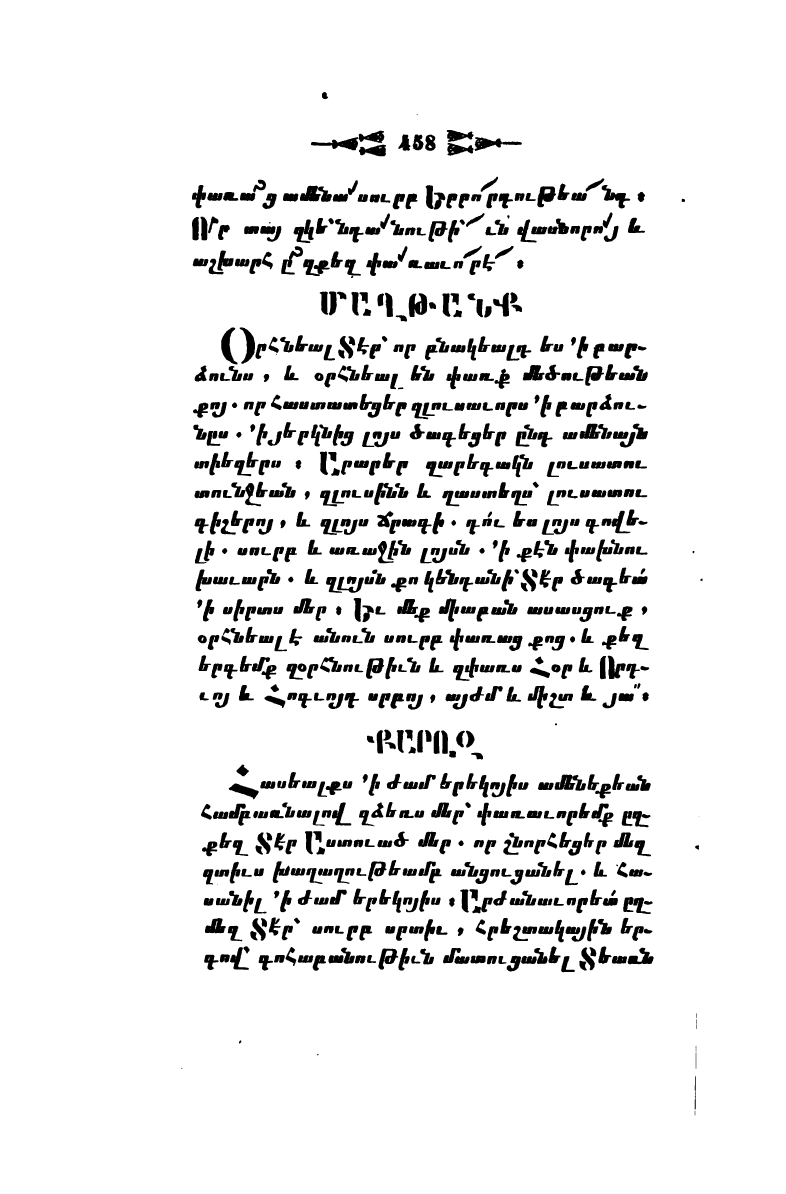 458
փառա՞ց ամենա՜սուրբ Երրո՛րդութեա՛նդ ։
Որ տայ զկե՝նդա՜նութի՝՛ւն վասնորո՜յ և
աշխարհ ը՞զքեզ փա՜ռաւո՛րէ՛ ։
ՄԱՂԹԱՆՔ
Օրհնեալ Տէր՝ որ բնակեալդ ես ՚ի բար-
ձունս , և օրհնեալ են փառք մեծութեան
քոյ . որ հաստատեցեր զլուսաւորս ՚ի բարձու-
նըս . ՚ի յերկնից լոյս ծագեցեր ընդ ամենայն
տիեզերս ։ Արարեր զարեգակն լուսատու
տունջեան , զլուսինն և զաստեղս՝ լուսատու
գիշերոյ , և զլոյս ճրագի . դո՛ւ ես լոյս գովե-
լի . սուրբ և առաջին լոյսն . ՚ի քէն փախնու
խաւարն . և զլոյսն քո կենդանի՝ Տէր ծագեա՛
՚ի սիրտս մեր ։ Եւ մեք միաբան ասասցուք ,
օրհնեալ է անուն սուրբ փառաց քոց . և քեզ
երգեմք զօրհնութիւն և զփառս Հօր և Որդ-
ւոյ և Հոգւոյդ սրբոյ , այժմ և միշտ և յա՟ ։
ՔԱՐՈԶ
Հասեալքս ՚ի ժամ երեկոյիս ամենեքեան
համբառնալով զձեռս մեր՝ փառաւորեմք ըզ-
քեզ Տէր Աստուած մեր . որ շնորհեցեր մեզ
զտիւս խաղաղութեամբ անցուցանել . և հա-
սանիլ ՚ի ժամ երեկոյիս ։ Արժանաւորեա՛ ըզ-
մեզ Տէր՝ սուրբ սրտիւ , հրեշտակային եր-
գով՝ գոհաբանութիւն մատուցանել Տեառն